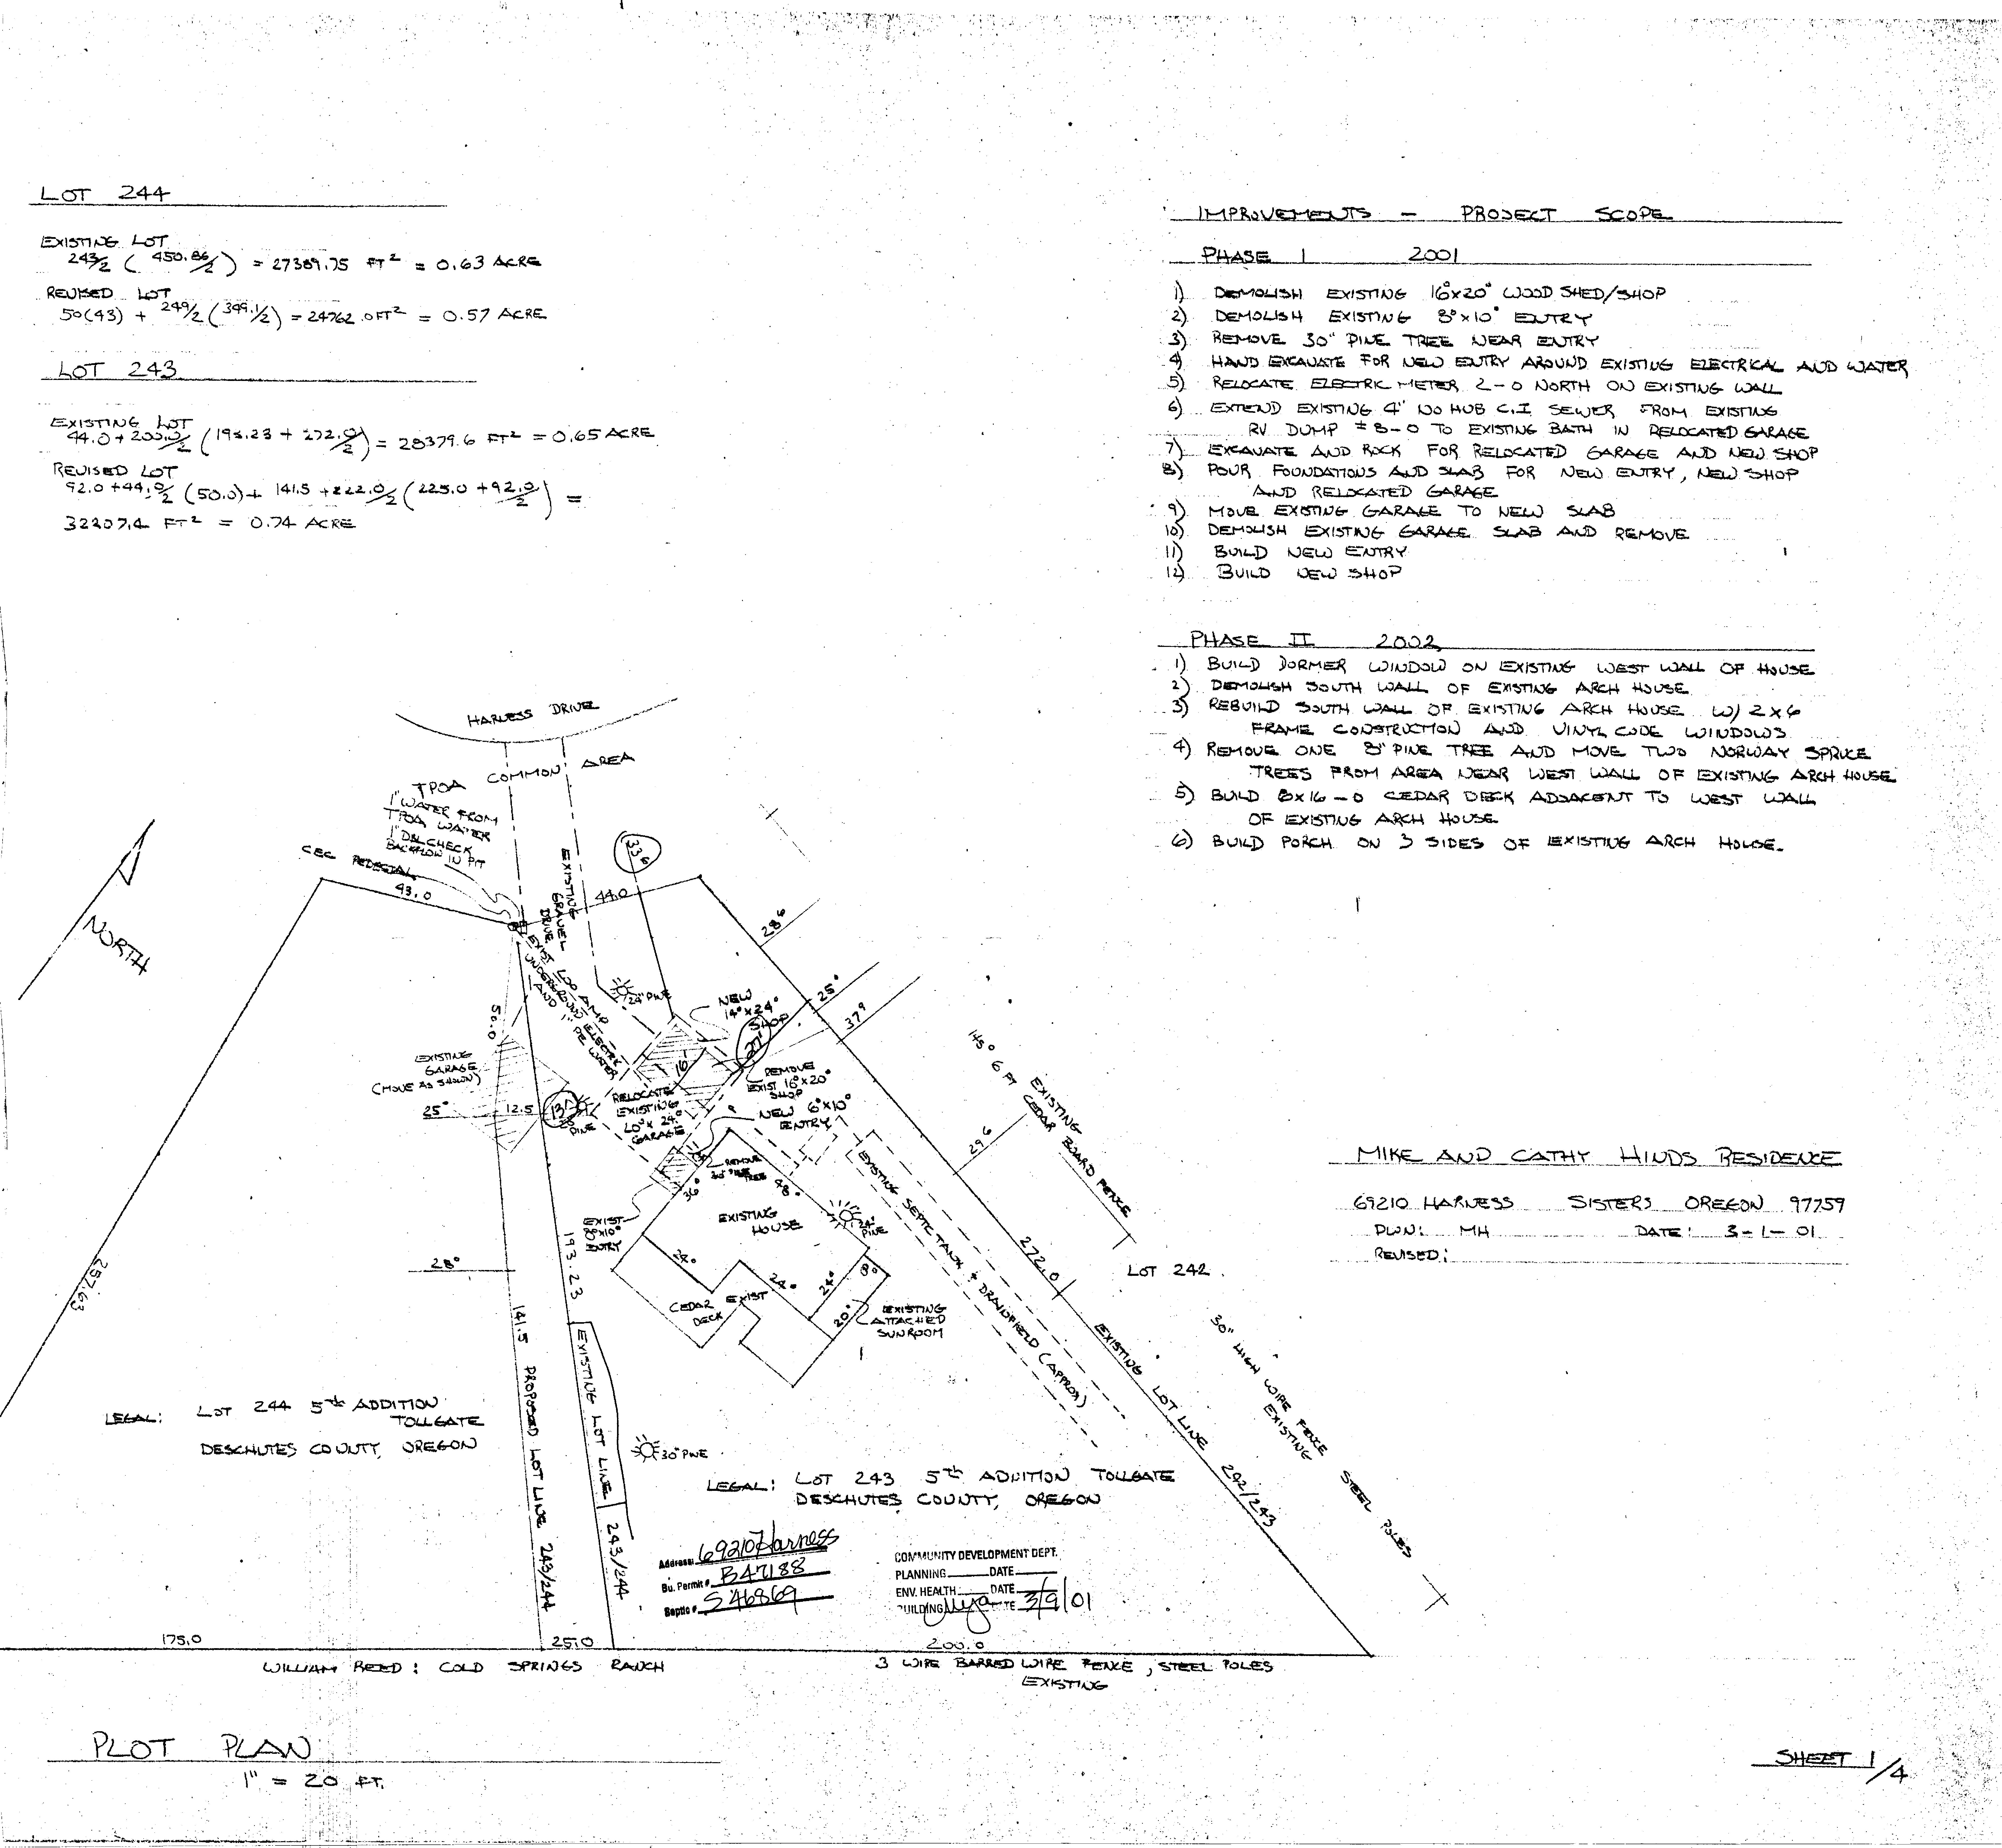 LOT 244
EXISTING LOT
243/2 ( 450.86/2 ) = 27389.75 FT² = 0.63 ACRE
REVISED LOT
50(43) + 249/2 (349.1/2) = 24762.0 FT² = 0.57 ACRE
LOT 243
EXISTING LOT
44.0 + 200.0/2 (193.23 + 272.0/2) = 28379.6 FT² = 0.65 ACRE
REVISED LOT
92.0 + 44.0/2 (50.0) + 141.5 + 222.0/2 (225.0 + 92.0/2) =
32207.4 FT² = 0.74 ACRE
IMPROVEMENTS - PROJECT SCOPE
PHASE I 2001
1) DEMOLISH EXISTING 16⁰x20⁰ WOOD SHED/SHOP
2) DEMOLISH EXISTING 8⁰x10⁰ ENTRY
3) REMOVE 30" PINE TREE NEAR ENTRY
4) HAND EXCAVATE FOR NEW ENTRY AROUND EXISTING ELECTRICAL AND WATER
5) RELOCATE ELECTRIC METER 2-0 NORTH ON EXISTING WALL
6) EXTEND EXISTING 4" NO HUB C.I SEWER FROM EXISTING
RV DUMP ± 8-0 TO EXISTING BATH IN RELOCATED GARAGE
7) EXCAVATE AND ROCK FOR RELOCATED GARAGE AND NEW SHOP
8) POUR FOUNDATIONS AND SLAB FOR NEW ENTRY, NEW SHOP
AND RELOCATED GARAGE
9) MOVE EXISTING GARAGE TO NEW SLAB
10) DEMOLISH EXISTING GARAGE SLAB AND REMOVE
11) BUILD NEW ENTRY
12) BUILD NEW SHOP
PHASE II 2002
1) BUILD DORMER WINDOW ON EXISTING WEST WALL OF HOUSE
2) DEMOLISH SOUTH WALL OF EXISTING ARCH HOUSE
3) REBUILD SOUTH WALL OF EXISTING ARCH HOUSE W/ 2x6
FRAME CONSTRUCTION AND VINYL CODE WINDOWS
4) REMOVE ONE 8" PINE TREE AND MOVE TWO NORWAY SPRUCE
TREES FROM AREA NEAR WEST WALL OF EXISTING ARCH HOUSE
5) BUILD 8x16-0 CEDAR DECK ADJACENT TO WEST WALL
OF EXISTING ARCH HOUSE
6) BUILD PORCH ON 3 SIDES OF EXISTING ARCH HOUSE.
HARNESS DRIVE
TPOA COMMON AREA
1" WATER FROM
TPOA WATER
1" DBL CHECK
BACKFLOW IN PIT
CEC PEDESTAL
43.0
EXISTING
GRAVEL
DRIVE
33⁶
44.0
NORTH
EXIST 200 AMP
UNDERGROUND ELECTRIC
AND 1" PE WATER
24" PINE
NEW
14⁰x24⁰
SHOP
28⁶
25⁰
37⁹
50.0
EXISTING
GARAGE
(MOVE AS SHOWN)
25⁰
12.5
13'
PINE
16'
27'
RELOCATE
EXISTING
20⁰x24⁰
GARAGE
REMOVE
EXIST 16⁰x20⁰
SHOP
NEW 6⁰x10⁰
ENTRY
REMOVE
30" PINE
TREE
145⁰ 6 FT
EXISTING
CEDAR BOARD FENCE
29⁶
36⁰
48⁰
EXIST
8⁰x10⁰
ENTRY
EXISTING
HOUSE
24" PINE
EXISTING SEPTIC TANK + DRAINFIELD (APPROX)
28⁰
193.23
24⁰
24⁰
24⁰
8⁰
20⁰
CEDAR EXIST
DECK
EXISTING
ATTACHED
SUNROOM
272.0
LOT 242
257.63
141.5 PROPOSED LOT LINE 243/244
EXISTING LOT LINE 243/244
EXISTING LOT LINE 242/243
30" HIGH WIRE FENCE STEEL POLES
EXISTING
LEGAL: LOT 244 5th ADDITION
TOLLGATE
DESCHUTES COUNTY, OREGON
30" PINE
LEGAL: LOT 243 5th ADDITION TOLLGATE
DESCHUTES COUNTY, OREGON
Address: 69210 Harness
Bu. Permit # B47188
Septic # S46869
COMMUNITY DEVELOPMENT DEPT.
PLANNING DATE
ENV. HEALTH DATE
BUILDING DATE 3/9/01
175.0
25.0
200.0
WILLIAM REED: COLD SPRINGS RANCH
3 WIRE BARBED WIRE FENCE, STEEL POLES
EXISTING
MIKE AND CATHY HINDS RESIDENCE
69210 HARNESS SISTERS OREGON 97759
DWN: MH DATE: 3-1-01
REVISED:
PLOT PLAN
1" = 20 FT.
SHEET 1/4